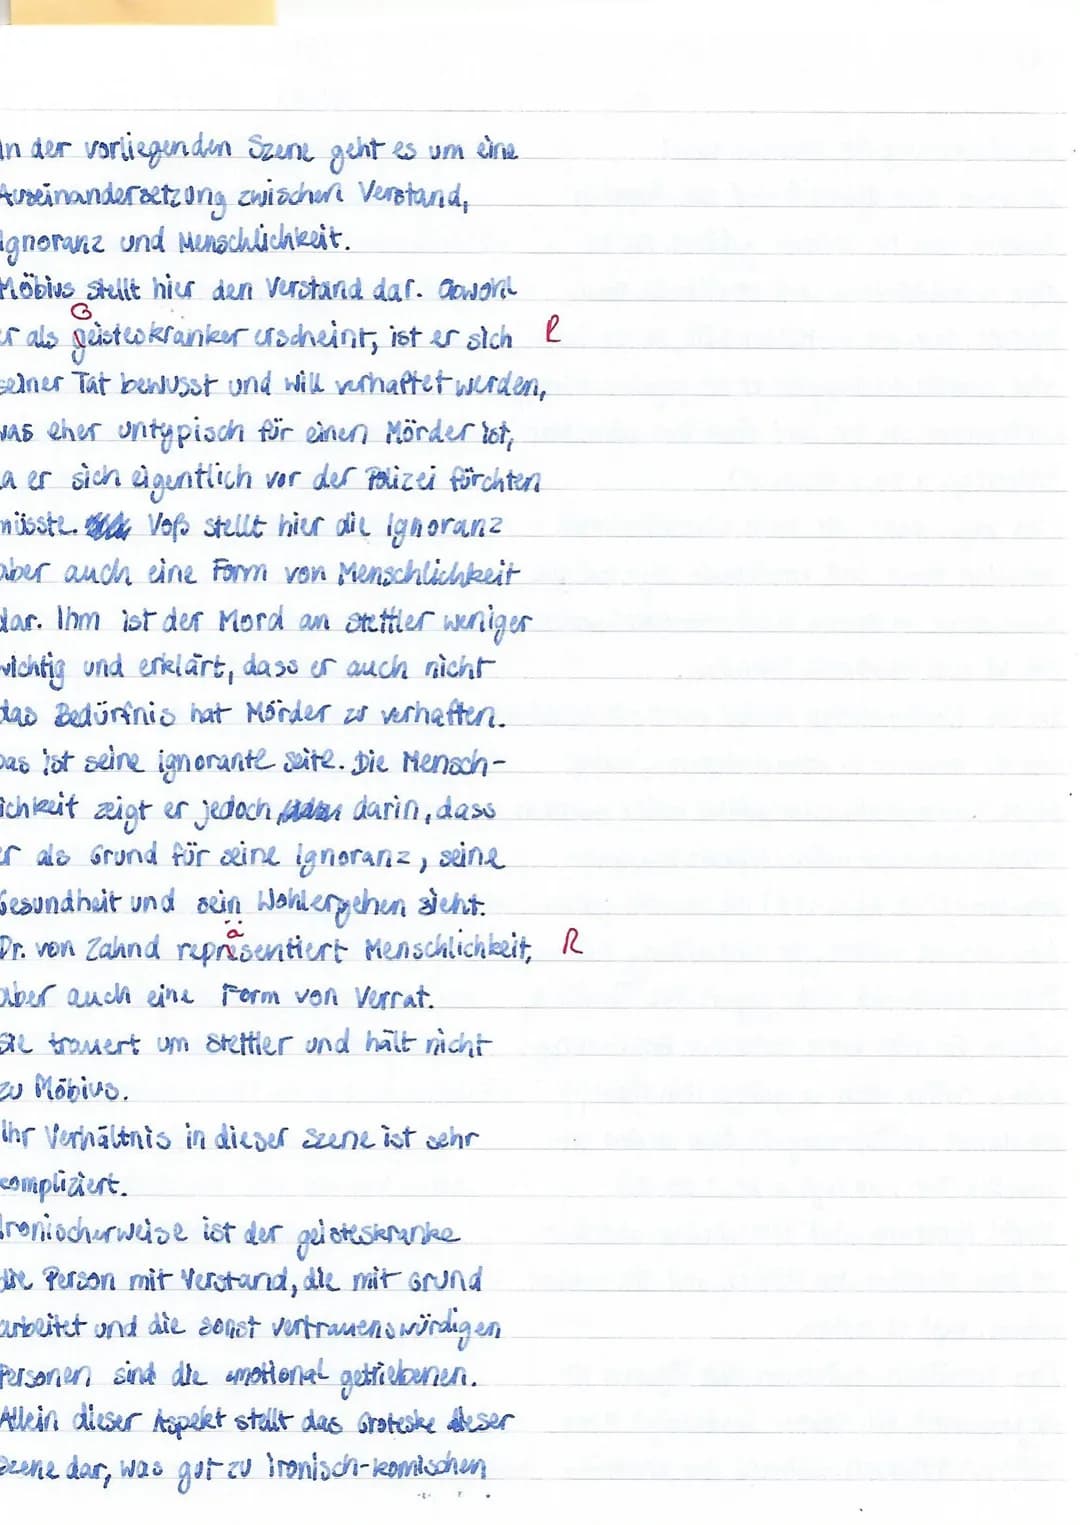 In der vorliegenden Szene geht es um eine
Auseinandersetzung zwischen Verstand,
Ignoranz und Menschlichkeit.
Möbius stellt hier den Verstand dar. Obwohl
G
er als geisteskranker erscheint, ist er sich R
seiner Tat bewusst und will verhaftet werden,
was eher untypisch für einen Mörder ist,
da er sich eigentlich vor der Polizei fürchten
müsste. Voß stellt hier die Ignoranz
aber auch eine Form von Menschlichkeit
dar. Ihm ist der Mord an Stettler weniger
wichtig und erklärt, dass er auch nicht
das Bedürfnis hat Mörder zu verhaften.
Das ist seine ignorante Seite. Die Mensch-
lichkeit zeigt er jedoch darin, dass
er als Grund für seine Ignoranz, seine
Gesundheit und sein Wohlergehen sieht.
ä
Dr. von Zahnd representiert Menschlichkeit, R
aber auch eine Form von Verrat.
Sie trauert um Stettler und hält nicht
zu Möbius.
Ihr Verhältnis in dieser Szene ist sehr
kompliziert.
Ironischerweise ist der geisteskranke
die Person mit Verstand, die mit Grund
arbeitet und die sonst vertrauenswürdigen
Personen sind die emotional getriebenen.
Allein dieser Aspekt stellt das Groteske dieser
Szene dar, was gut zu ironisch-komischen